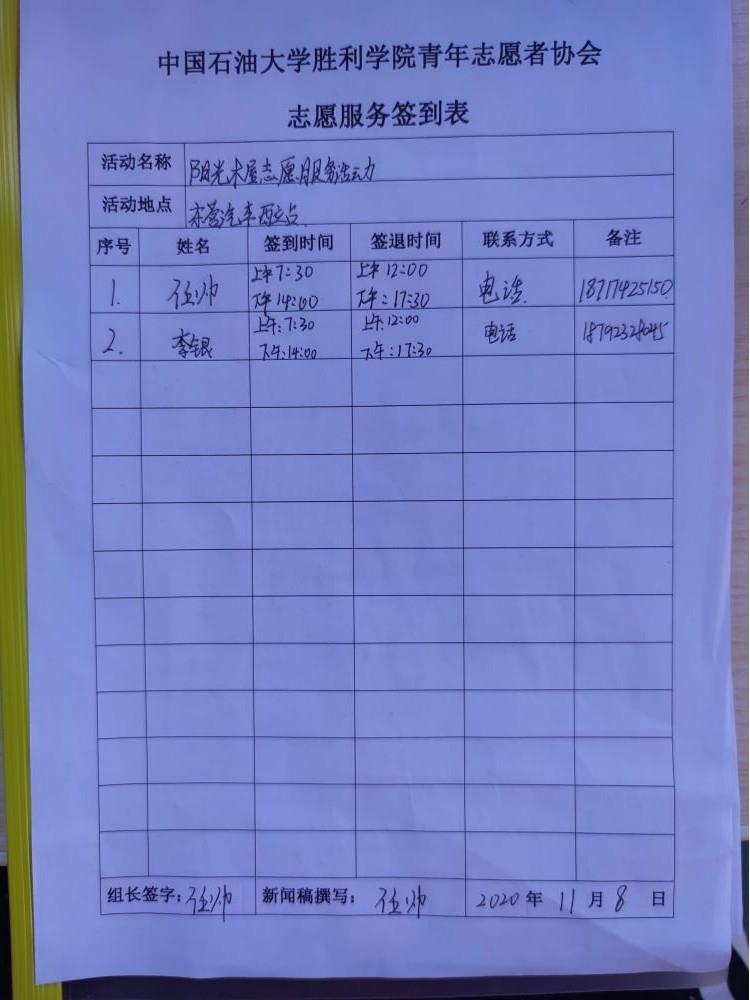 中国石油大学胜利学院青年志愿者协会
志愿服务签到表
活动名称 阳光木屋志愿服务活动
活动地点 东营汽车西站
序号 姓名 签到时间 签退时间 联系方式 备注
1. 任帅 上午7:30 上午12:00 电话 18717425150
下午14:00 下午:17:30
2. 李银 上午:7:30 上午:12:00 电话
下午:14:00 下午:17:30
组长签字:任帅 新闻稿撰写:任帅 2020年11月8日